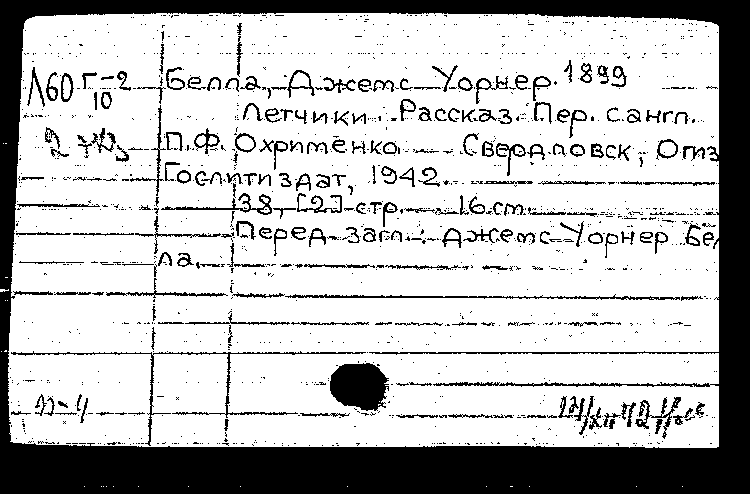 Л60 Г-2/10 Белла, Джемс Уорнер. 1899
Летчики. Рассказ. Пер. с англ.
2 экз П.Ф. Охрименко. Свердловск, Огиз
Гослитиздат, 1942.
38, [2] стр. 16 см.
Перед загл.: Джемс Уорнер Бел
ла.
П-4